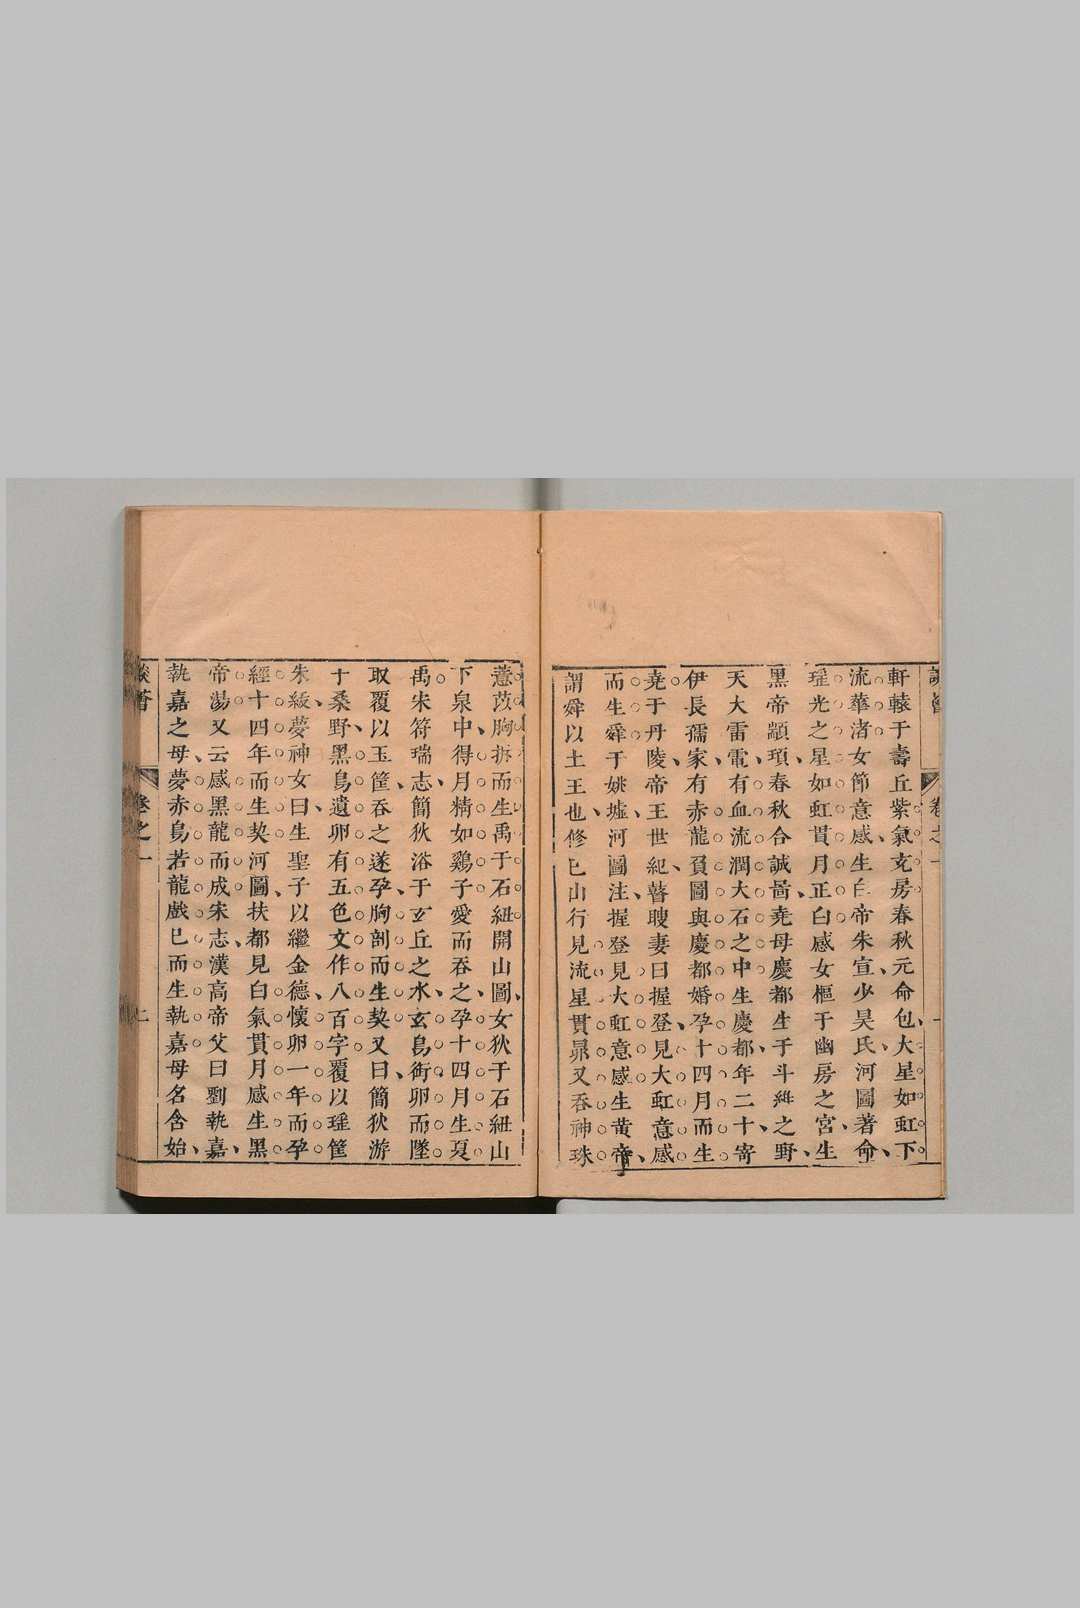 軒轅于壽丘紫氣充房春秋元命包大星如虹下
流華渚女節意感生白帝朱宣少昊氏河圖著命
瑤光之星如虹貫月正白感女樞于幽房之宮生
黑帝顓頊春秋合誠啚堯母慶都生于斗維之野
天大雷電有血流潤大石之中生慶都年二十寄
伊長孺家有赤龍負圖與慶都婚孕十四月而生
堯于丹陵帝王世紀瞽瞍妻曰握登見大虹意感
而生舜于姚墟河圖注握登見大虹意感生黄帝
謂舜以土王也修巳山行見流星貫昴又吞神珠
薏苡胸拆而生禹于石紐開山圖女狄于石紐山
下泉中得月精如鷄子愛而吞之孕十四月生夏
禹宋符瑞志簡狄浴于玄丘之水玄鳥銜卵而墜
取覆以玉筐吞之遂孕胸剖而生契又曰簡狄游
十桑野黑鳥遺卵有五色文作八百字覆以瑤筐
朱綬夢神女曰生聖子以繼金德懷卵一年而孕
經十四年而生契河圖扶都見白氣貫月感生黑
帝湯又云感黑龍而成宋志漢高帝父曰劉執嘉
執嘉之母夢赤鳥若龍戲巳而生執嘉母名含始
卷之一